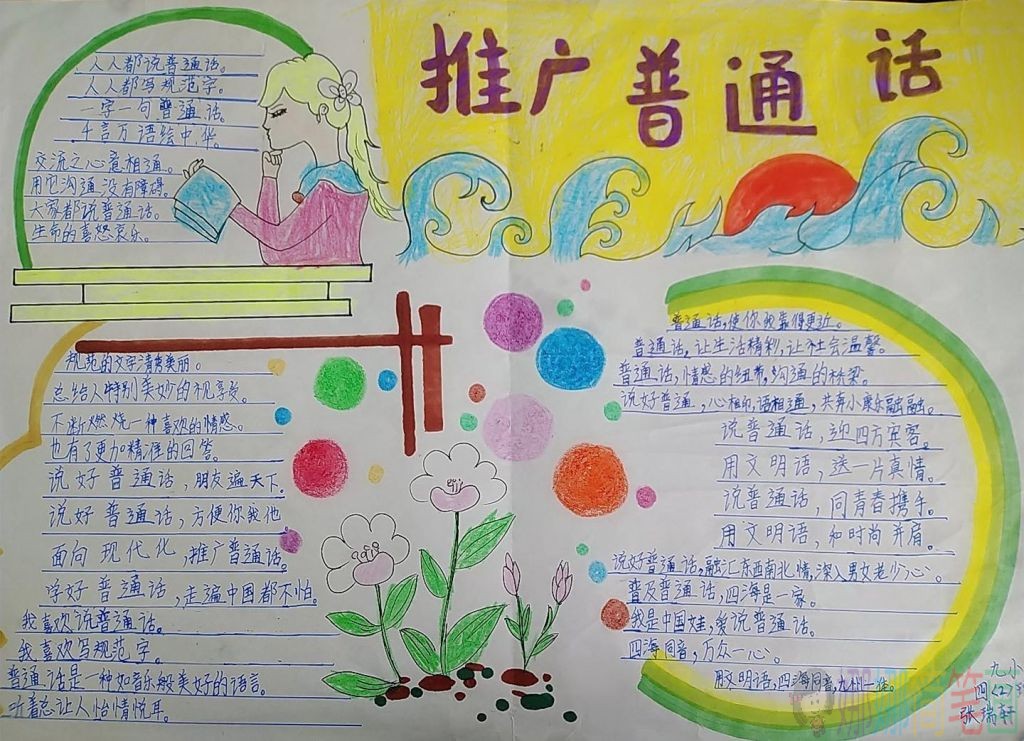 推广普通话
人人都说普通话。
人人都写规范字。
一字一句普通话。
千言万语绘中华。
交流之心意相通。
用它沟通没有障碍。
大家都说普通话。
生命的喜怒哀乐。
规范的文字清秀美丽。
总给人特别美妙的视享受。
不断燃烧一种喜欢的情感。
也有了更加精准的回答。
说好普通话，朋友遍天下。
说好普通话，方便你我他。
面向现代化，推广普通话。
学好普通话，走遍中国都不怕。
我喜欢说普通话。
我喜欢写规范字。
普通话是一种如音乐般美好的语言。
听着总让人怡情悦耳。
普通话，使你我靠得更近。
普通话，让生活精彩，让社会温馨。
普通话，情感的纽带，沟通的桥梁。
说好普通，心相印，语相通，共奔小康乐融融。
说普通话，迎四方宾客。
用文明语，送一片真情。
说普通话，同青春携手。
用文明语，和时尚并肩。
说好普通话，融汇东西南北情，深入男女老少心。
普及普通话，四海是一家。
我是中国娃，爱说普通话。
四海同音，万众一心。
用文明语，四海同音，九州一
九小
四〈2〉
张瑞轩